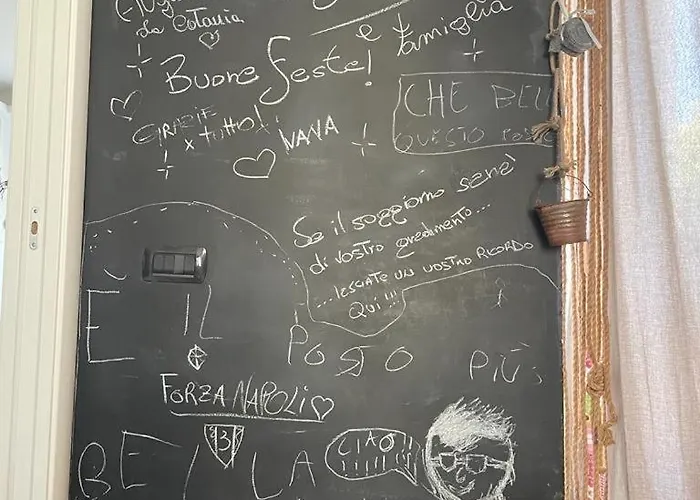 da Catania
e famiglia
Buone feste!
CHE BEL
QUESTO POSTO
GRAZIE
x tutto!
IVANA
Se il soggiorno serà
di vostro gredimento...
...lesciate un vostro ricordo
Qui!!!
È IL POSTO PIÙ
FORZA NAPOLI
3
BELLA
CIAO
!!!!!!!!